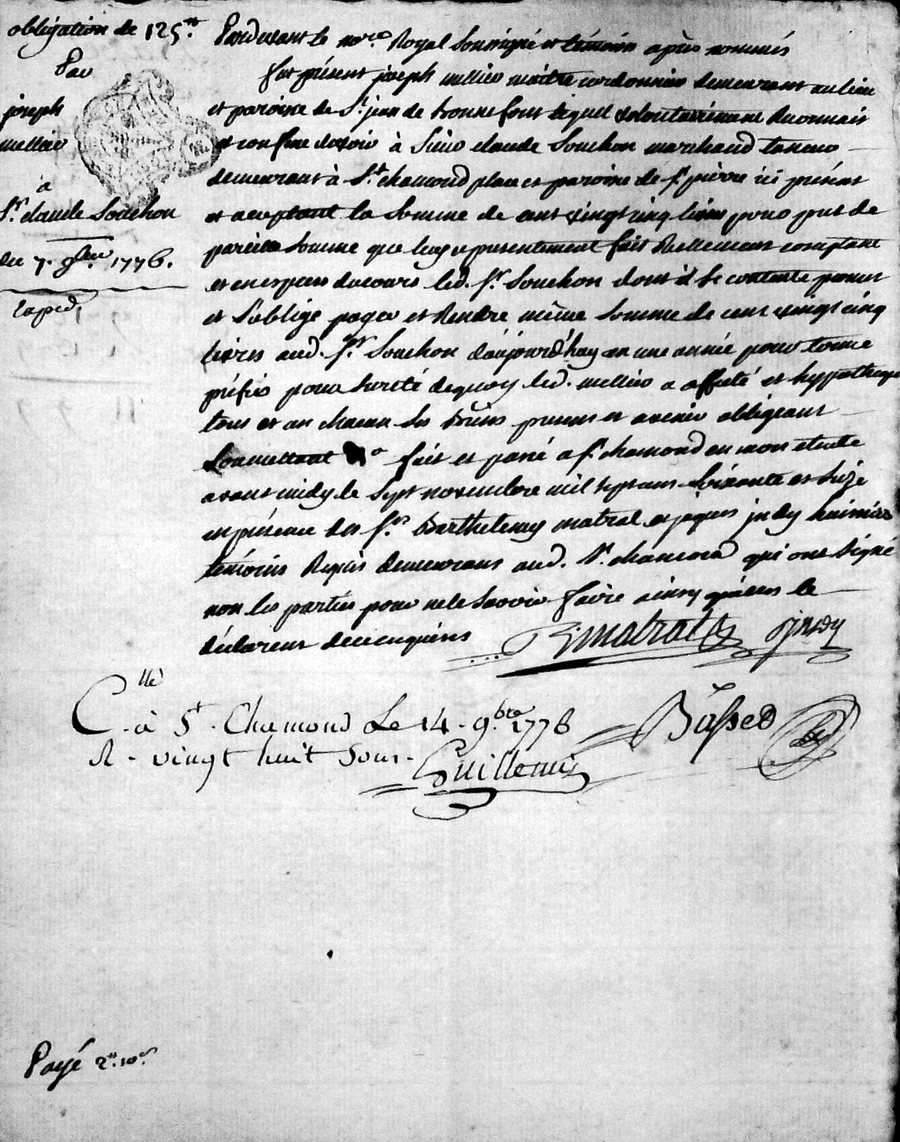 obligation de 125 ᵗᵗ
Par
joseph
mellier
à
Sr. claude Souchon
du 7. 9bre 1776.
Expedᵉ
Pardevant le nore. Royal Soussigné et témoins après nommés
fut présent joseph mellier maitre cordonnier demeurant au lieu
et paroisse de St. jean de bonnefont lequel volontairement Reconnait
et confesse devoir à Sieur claude Souchon marchand tanneur
demeurant à St. chamond place et paroisse de St. pierre ici présent
et aceptant la Somme de cent vingt cinq livres pour pret de
pareille Somme que luy a presentement fait Réellement comptant
et en especes du cours led. Sr. Souchon dont il Se contente promet
et S'oblige payer et Rendre même Somme de cent vingt cinq
livres aud. Sr. Souchon d'aujourd'huy en une année pour terme
préfix pour Sureté de quoy led. mellier a affecté et hypothequé
tous et un chacun Ses biens presents et avenir obligeant
Soumettant fait et passé a St. chamond en mon etude
avant midy le Sept novembre mil Sept cens Soixante et Seize
en présence des Srs. Barthelemy matrat et jaques jndy huissier
témoins Requis demeurans aud. St. chamond qui ont Signé
non les parties pour ne le Savoir faire ainsy qu'elles le
déclarent de ce enquises
B: matrat jndy
C.llé à St. Chamond Le 14. 9bre 1776
R. vingt huit Sous. Guillemin
Payé 2ᵗᵗ. 10ˢ.